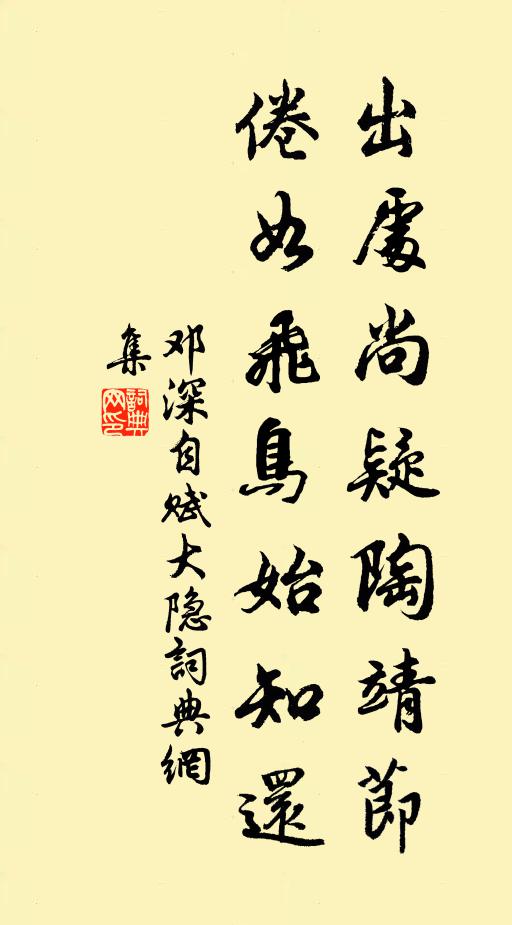 出處尚疑陶靖節
倦如飛鳥始知還
邓深自赋大隐詞典網
集
詞典网印